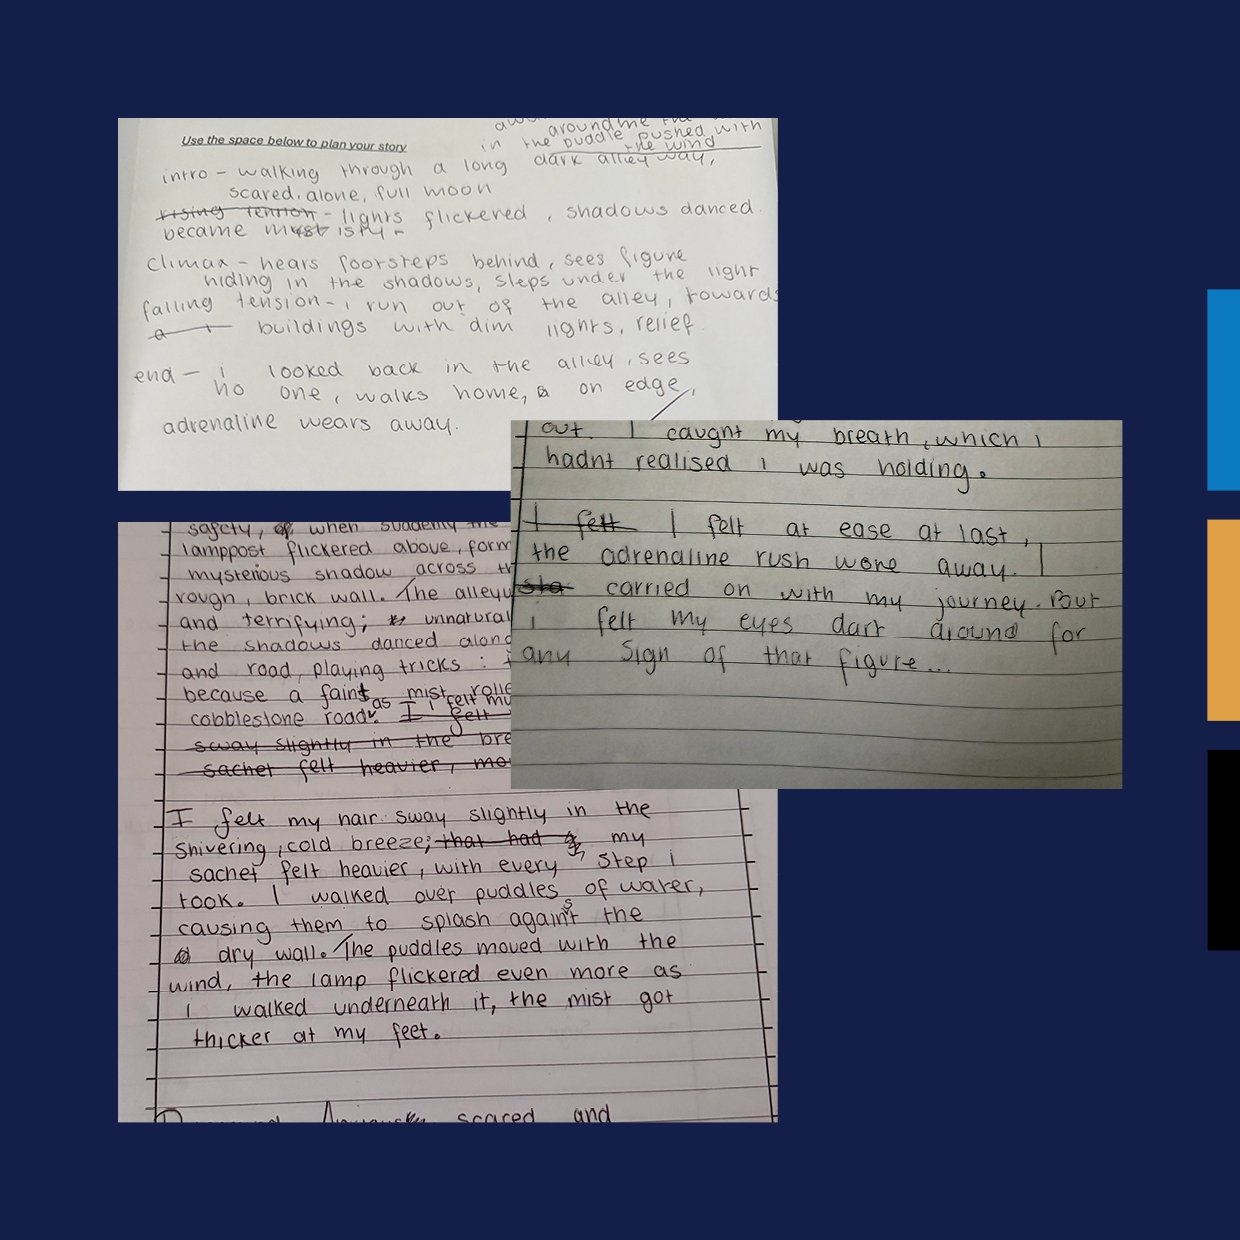 around me the
in the puddle pushed with
the wind
Use the space below to plan your story
intro - walking through a long dark alley way,
scared, alone, full moon
rising tension - lights flickered, shadows danced.
became misty -
climax - hears footsteps behind, sees figure
hiding in the shadows, steps under the light
falling tension - i run out of the alley, towards
a buildings with dim lights, relief.
end - i looked back in the alley, sees
no one, walks home, on edge,
adrenaline wears away.
out. I caught my breath, which i
hadnt realised i was holding.
I felt I felt at ease at last,
the adrenaline rush wore away. I
sta carried on with my journey. But
i felt my eyes dart around for
any sign of that figure...
safety, when suddenly the
lamppost flickered above, form
mysterious shadow across
rough, brick wall. The
and terrifying; unnatural
the shadows danced along
and road, playing tricks :
because a faint mist
cobblestone road. as I felt
I felt
sway slightly in the bre
sachet felt heavier, mo
I felt my hair sway slightly in the
shivering, cold breeze; that had my
sachet felt heavier, with every step i
took. I walked over puddles of water,
causing them to splash against the
dry wall. The puddles moved with the
wind, the lamp flickered even more as
i walked underneath it, the mist got
thicker at my feet.
scared and